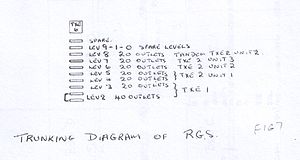 TXE
6
SPARE
LEV 9-1-0 SPARE LEVELS
LEV 8 20 OUTLETS TANDEM TXE2 UNIT 2
LEV 7 20 OUTLETS TXE 2 UNIT 3
LEV 6 20 OUTLETS TXE 2 UNIT 2
LEV 5 20 OUTLETS } TXE 2 UNIT 1
LEV 4 20 OUTLETS
LEV 3 20 OUTLETS } TXE 1
LEV 2 40 OUTLETS
TRUNKING DIAGRAM OF RGS.
FIG 7